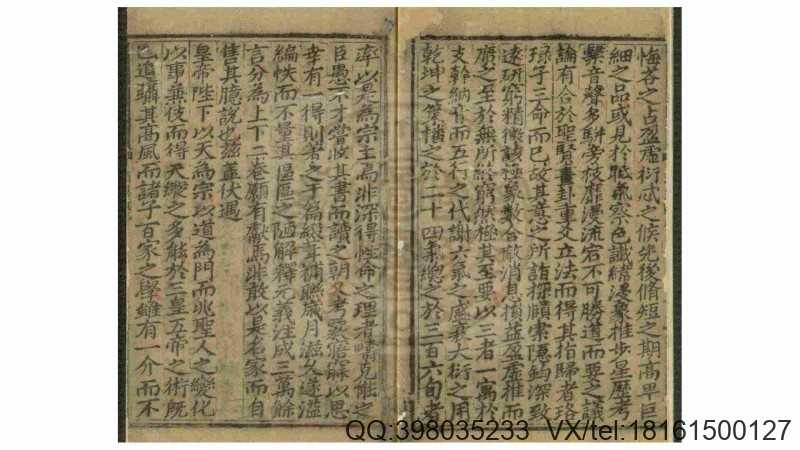 悔吝之占盈虛衍忒之候先後脩短之期高卑巨
細之品或見於賦氣察色識緒漫象推步星曆考
繫音聲多駢旁枝靡漫流宕不可勝道而要之議
論有合於聖賢畫卦重爻立法而得其指歸者珞
琭子三命而已故其意之所詣探賾索隱鈎深致
遠研窮精微該極象數合散消息損益盈虛推而
廣之至於無所終窮然極其至要以三者一寓於
支幹納音而五行之代謝六氣之盛衰大衍之用
乾坤之策播之於二十四氣總之於三百六旬者
率以是為宗主焉非深得性命之理者疇克能之
臣愚不才嘗收其書而讀之朝夕考察
幸有一得則著之于篇緝裒聯歲月滋久遂溢
編帙而不量其區區之陋解釋元義注成三萬餘
言分為上下二卷願有獻焉非敢以是名家而自
售其臆說也茲蓋伏遇
皇帝陛下以天為宗以道為門而兆聖人之變化
以事兼伎而得天縱之多能於三皇五帝之術既
已追躡其高風而諸子百家之學雖有一介而不
QQ:398035233 VX/tel:18161500127